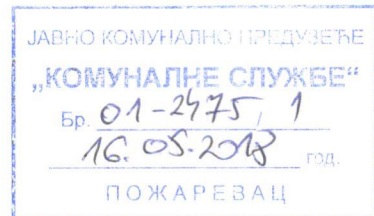 ЈАВНО КОМУНАЛНО ПРЕДУЗЕЋЕ
„КОМУНАЛНЕ СЛУЖБЕ“
Бр. 01-2475/1
16.05.2018 год.
ПОЖАРЕВАЦ